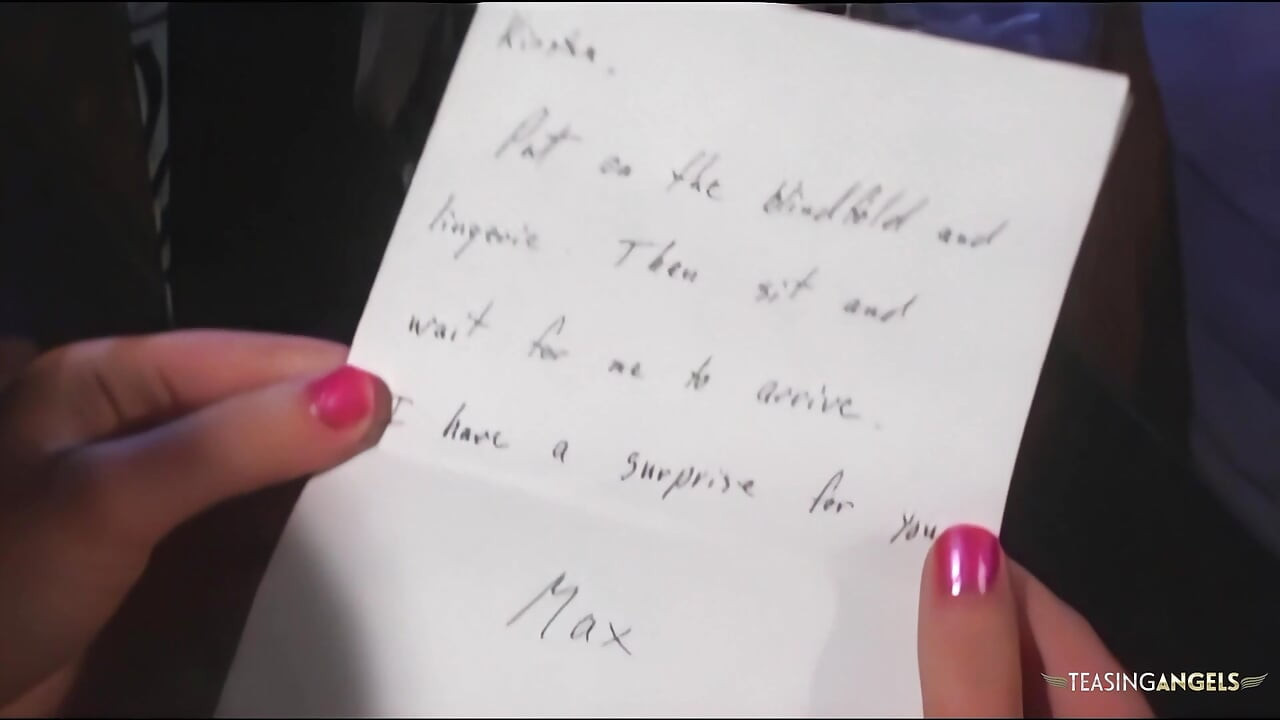 Put on the blindfold and
lingerie. Then sit and
wait for me to arrive.
I have a surprise for you
Max
TEASINGANGELS